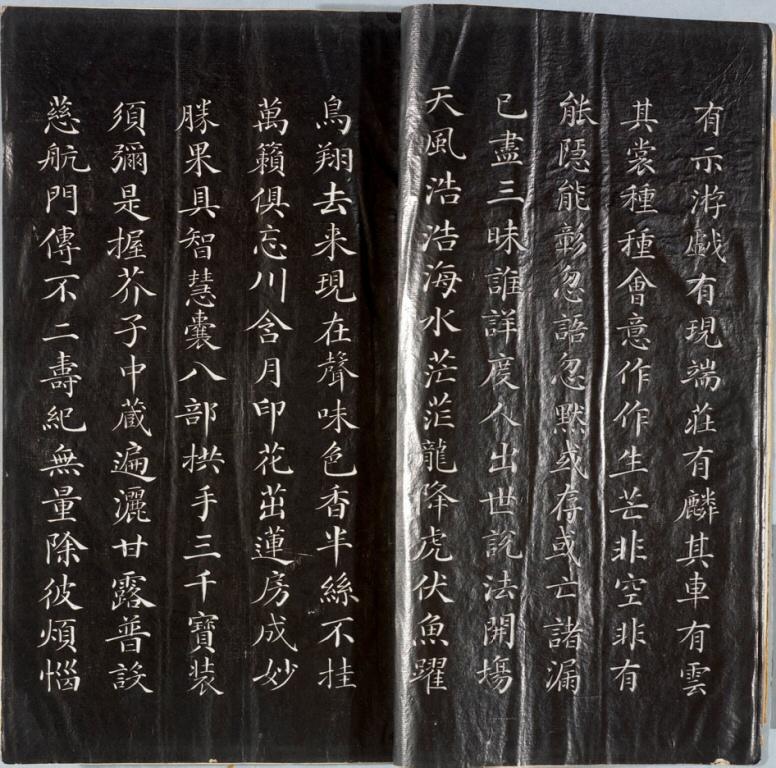 有示游戲有現端莊有麟其車有雲
其裳種種會意作作生芒非空非有
能隱能彰忽語忽默或存或亡諸漏
已盡三昧誰詳度人出世說法開場
天風浩浩海水茫茫龍降虎伏魚躍
鳥翔去来現在聲味色香半絲不挂
萬籟俱忘川含月印花茁蓮房成妙
勝果具智慧囊八部拱手三千寶裝
須彌是握芥子中藏遍灑甘露普設
慈航門傳不二壽紀無量除彼煩惱